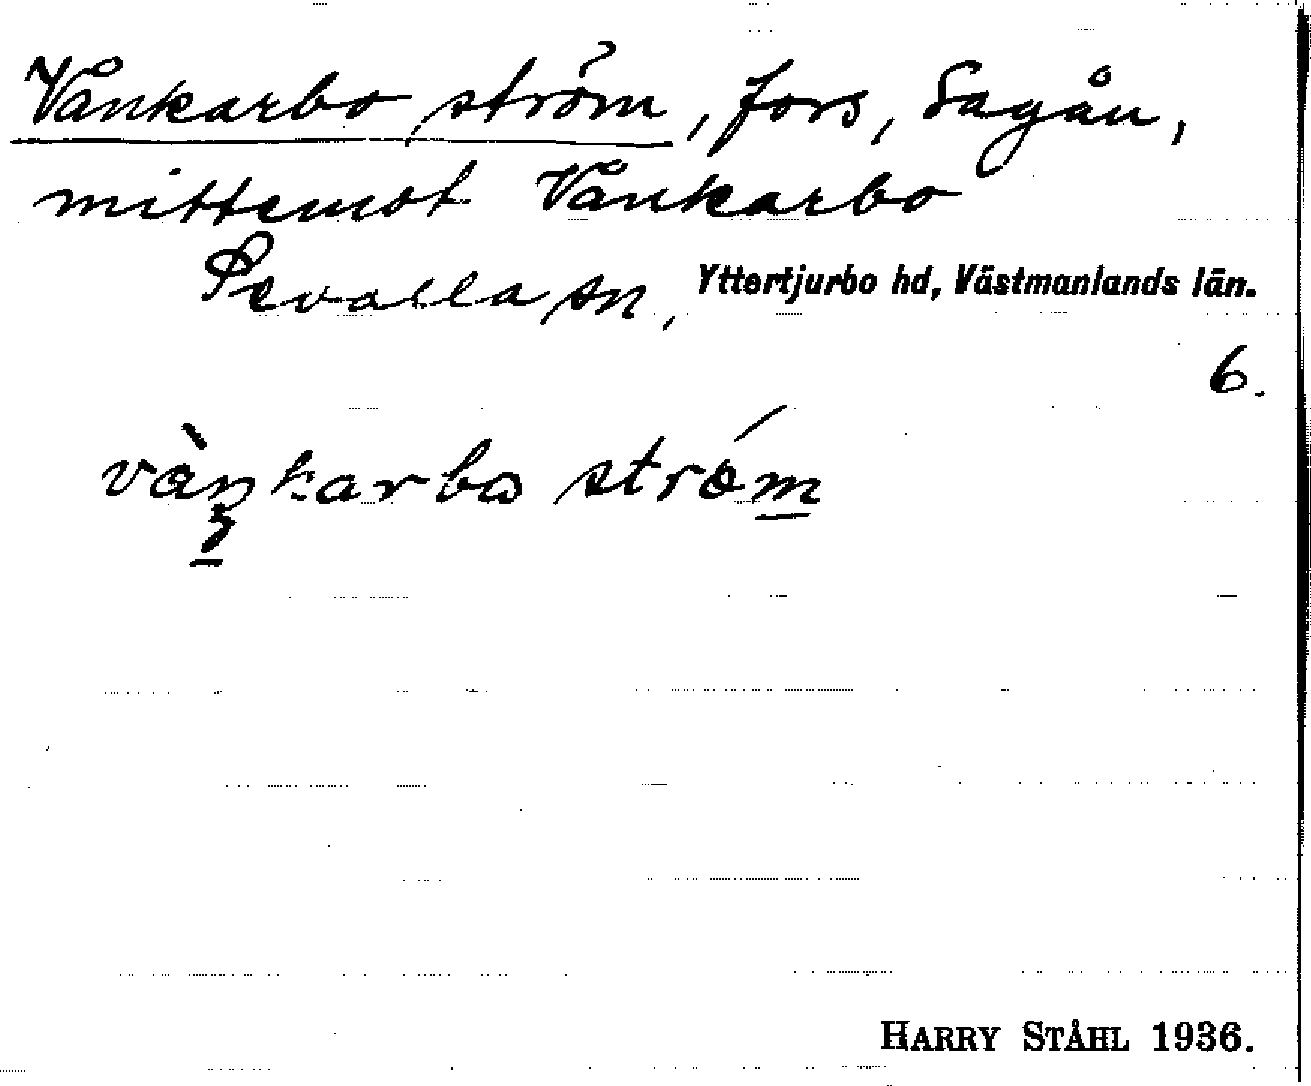 Vånkarbo ström, fors, Sagån,
mittemot Vånkarbo
Sevalla sn, Yttertjurbo hd, Västmanlands län.
6.
vàŋkarbω strǿm
HARRY STÅHL 1936.